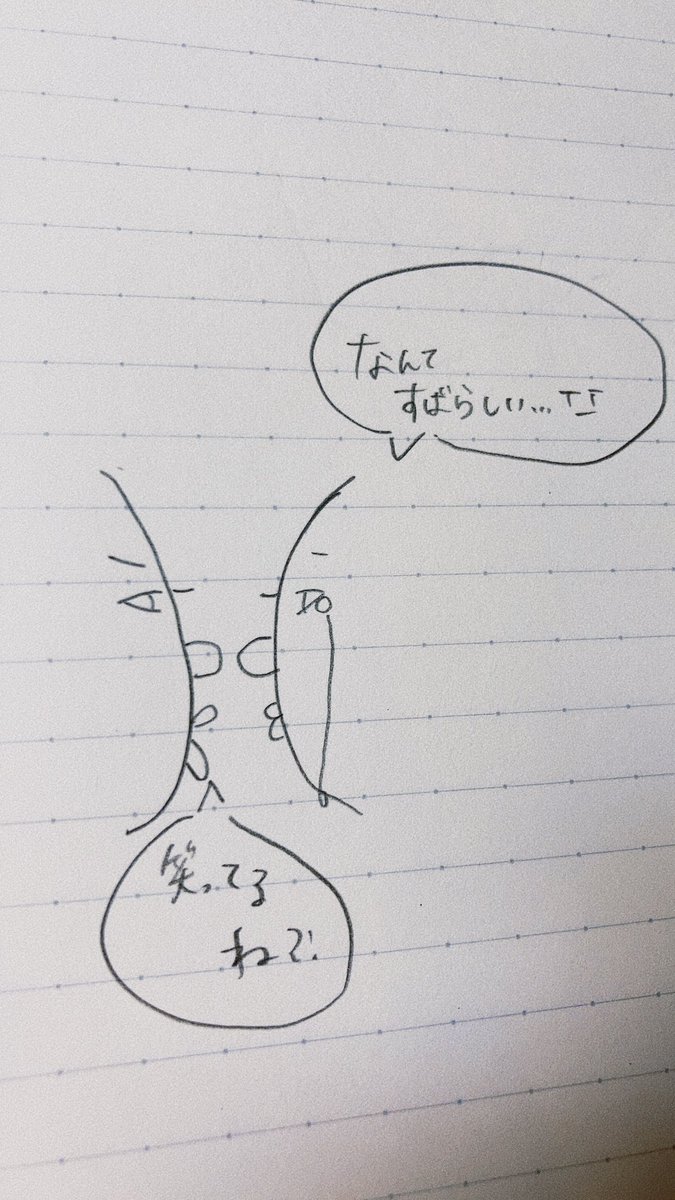 なんて
すばらしい...
笑ってる
ね?!